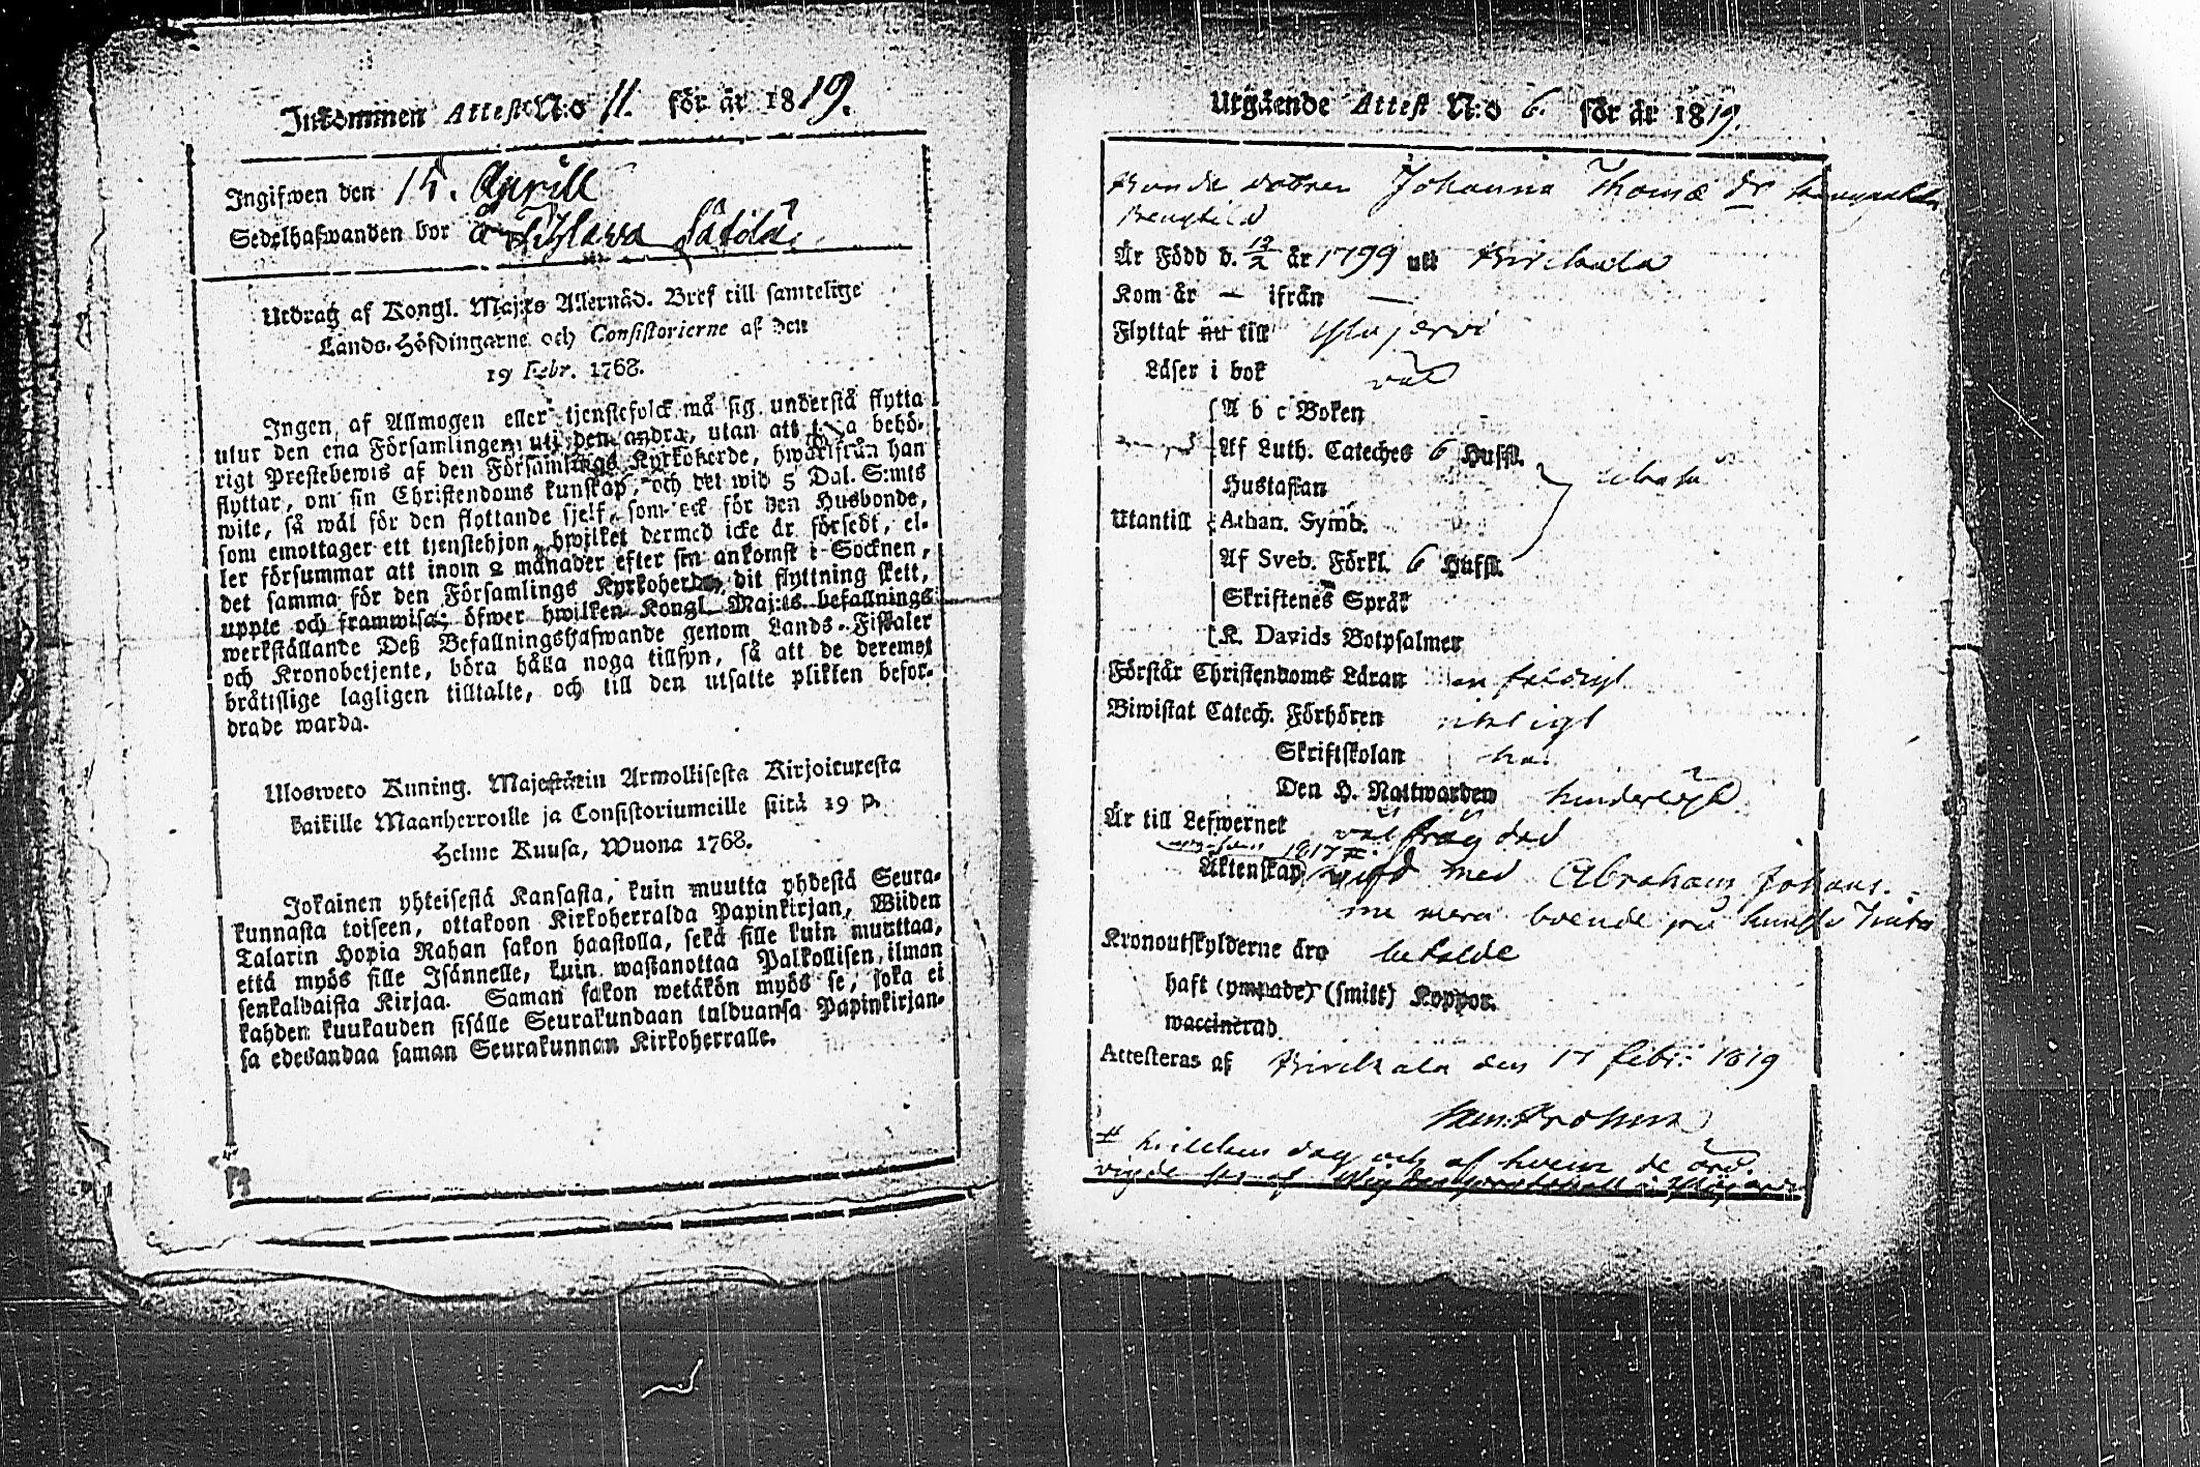 Inkommen Attest N:o 11. för år 1819.
Ingifwen den 15. Aprill
Sedelhafwanden bor å
Utdrag af Kongl. Maj:ts Allernåd. Bref till samtelige
Lands-Höfdingarne och Consistorierne af den
19 Febr. 1768.
Ingen af Allmogen eller tjenstefolck må sig understå flytta
utur den ena Församlingen uti den andra, utan att taga behö-
rigt Prestebewis af den Församlings Kyrkoherde, hwarifrån han
flyttar, om sin Christendoms kunskap, och det wid 5 Dal. S:mts
wite, så wäl för den flyttande sjelf, som ock för den Husbonde,
som emottager ett tjenstehjon, hwilket dermed icke är försedt, el-
ler försummar att inom 2 månader efter sin ankomst i Socknen,
det samma för den Församlings Kyrkoherde, dit flyttning skett,
uppte och framwisa; öfwer hwilken Kongl. Maj:ts befallnings
werkställande Deß Befallningshafwande genom Lands-Fiskaler
och Kronobetjente, böra hålla noga tillsyn, så att de deremot
bråtislige lagligen tilltalte, och till den utsatte plikten befor-
drade warda.
Ulosweto Kuning. Majestätin Armollisesta Kirjoituxesta
kaikille Maanherroille ja Consistoriumeille siitä 19 p.
Helme Kuusa, Wuona 1768.
Jokainen yhteisestä Kansasta, kuin muutta yhdestä Seura-
kunnasta toiseen, ottakoon Kirkoherralda Papinkirjan, Wiiden
Talarin Hopia Rahan sakon haastolla, sekä sille kuin muuttaa,
että myös sille Isännelle, kuin wastanottaa Palkollisen, ilman
senkaldaista Kirjaa. Saman sakon wetäkön myös se, joka ei
kahden kuukauden sisälle Seurakundaan tulduansa Papinkirjan-
sa edesandaa saman Seurakunnan Kirkoherralle.
Utgående Attest N:o 6. för år 1819.
Bonde dottren Johanna Thomæ dr
Är Född d. 12/2 år 1799 uti Birckala
Kom år — ifrån —
Flyttat nu till Ylöjervi
Läser i bok väl
A b c Boken
Af Luth. Cateches 6 Hufst.
Hustaflan
Utantill Athan. Symb.
Af Sveb. Förkl. 6 Hufst.
Skriftenes Språk
K. Davids Botpsalmer
Förstår Christendoms Läran
Biwistat Catech. Förhören riktigt
Skriftskolan
Den H. Nattwarden
Är till Lefwernet väl frägdad
1817 #.
Äktenskap vigd med Abraham Johans.
boende på
Kronoutskylderne äro betalde
haft (ympade) (smitt) Koppor.
waccinerad
Attesteras af Birckala den 17 febr: 1819
# hvilken dag och af hvem de äro
vigde